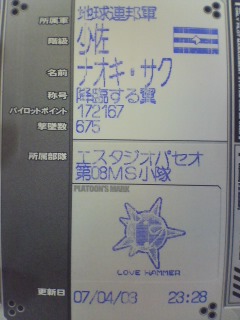 所属軍 地球連邦軍
階級 少佐
名前 ナオキ・サク
称号 降臨する翼
パイロットポイント 172167
撃墜数 675
所属部隊 エスタジオパセオ
第08MS小隊
PLATOON'S MARK
LOVE HAMMER
更新日 07/04/03 23:28